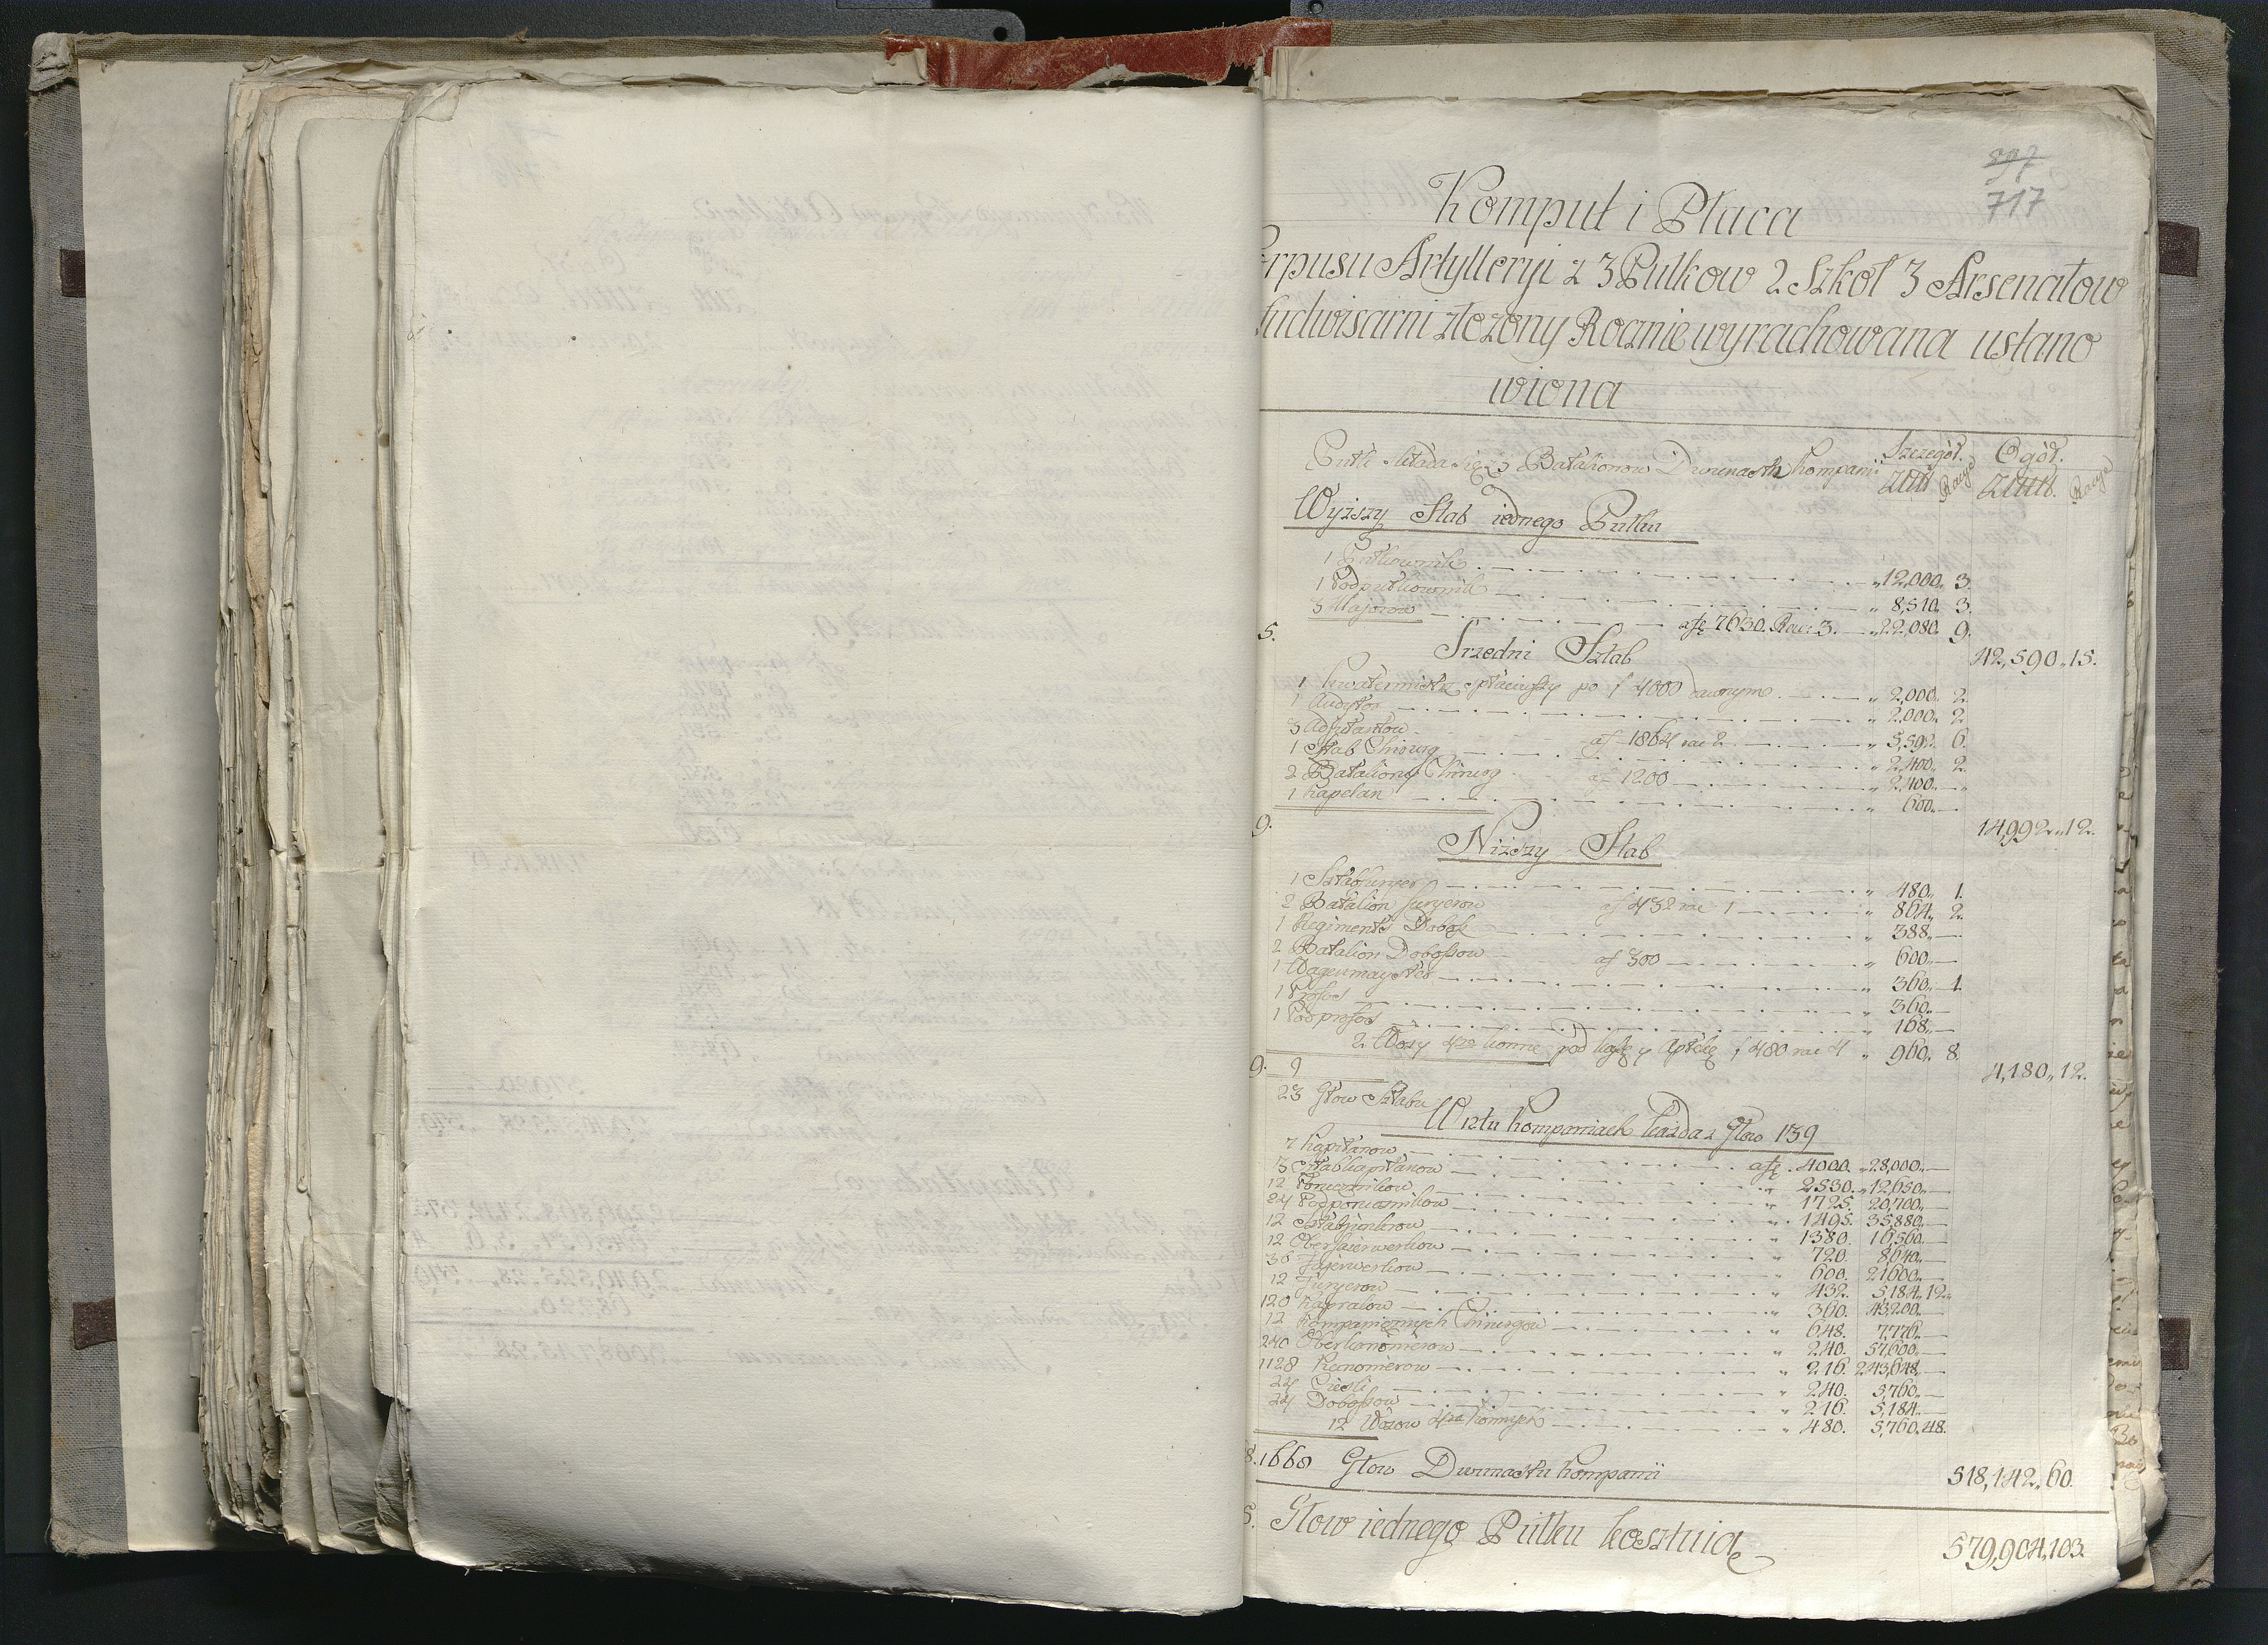 597
717
Komput i Płaca
rpusu Artylleryi z 3 Pułkow 2 Szkoł 3 Arsenałow
ludwisarni złożony Rocznie wyrachowana ustano
wiona
Pułk składa się z 3 Batalionow Dwunastu kompanii
Szczegół. Ogół.
Złłł Racye Złłł. Racye
Wyższy Stab iednego Pułku
1 Pułkownik „12,000„ 3.
1 Podpułkownik „ 8,510„ 3.
3 Majorow a f 7630. Rac: 3. „22,080„ 9.
5. 42,590„15.
Srzedni Sztab
1 kwatermistrz płacący po f 4000 dawnym „ 2,000„ 2.
1 Audytor „ 2.000„ 2
3 Adjutantow af 1864 rac 2 „ 5,592„ 6.
1 Stab Chirurg „ 2,400„ 2.
2 Batalion Chirurg af 1200 „ 2,400„
1 kapelan „ 600„
9. 14,992„12.
Niższy Stab
1 Sztabfuryer „ 480„ 1.
2 Batalion furyerow af 432 rac 1 „ 864„ 2.
1 Regiments Dobosz „ 388„
2 Batalion Doboszow af 300 „ 600„
1 Wagenmayster „ 360„ 1.
1 Profos „ 360„
1 Podprofos „ 168„
2. Wozy 4ro konne pod kassę y Aptekę f 480 rac 4 „ 960„ 8.
9. 9 4,180„12.
23 Głow Sztabu
W 12tu kompaniach każda z Głow 139
7 kapitanow af 4000. „28,000„
5 Stabkapitanow „ 2530. „12,650„
12 Porucznikow „ 1725. 20,700„
24 Podporucznikow „ 1495. 35,880„
12 Sztabjunkrow „ 1380. 16,560„
12 Oberfaierwerkow „ 720. 8,640„
36 Fajerwerkow „ 600. 21600„
12 Furyerow „ 432. 5,184„12„
120 kapralow „ 360. 43,200„
12 kompanicznych Chirurgow „ 648. 7,776„
240 Oberkanonierow „ 240. 57,600„
1128 kanonierow „ 216. 243,648„
24 Cieśli „ 240. 5,760„
24 Doboszow „ 216. 5,184„
12 Wozow 4ro konnych „ 480. 5,760„48.
8. 1668 Głow Dwunastu kompanii 518,142„60.
5. Głow iednego Pułku kosztuią 579,904„103.